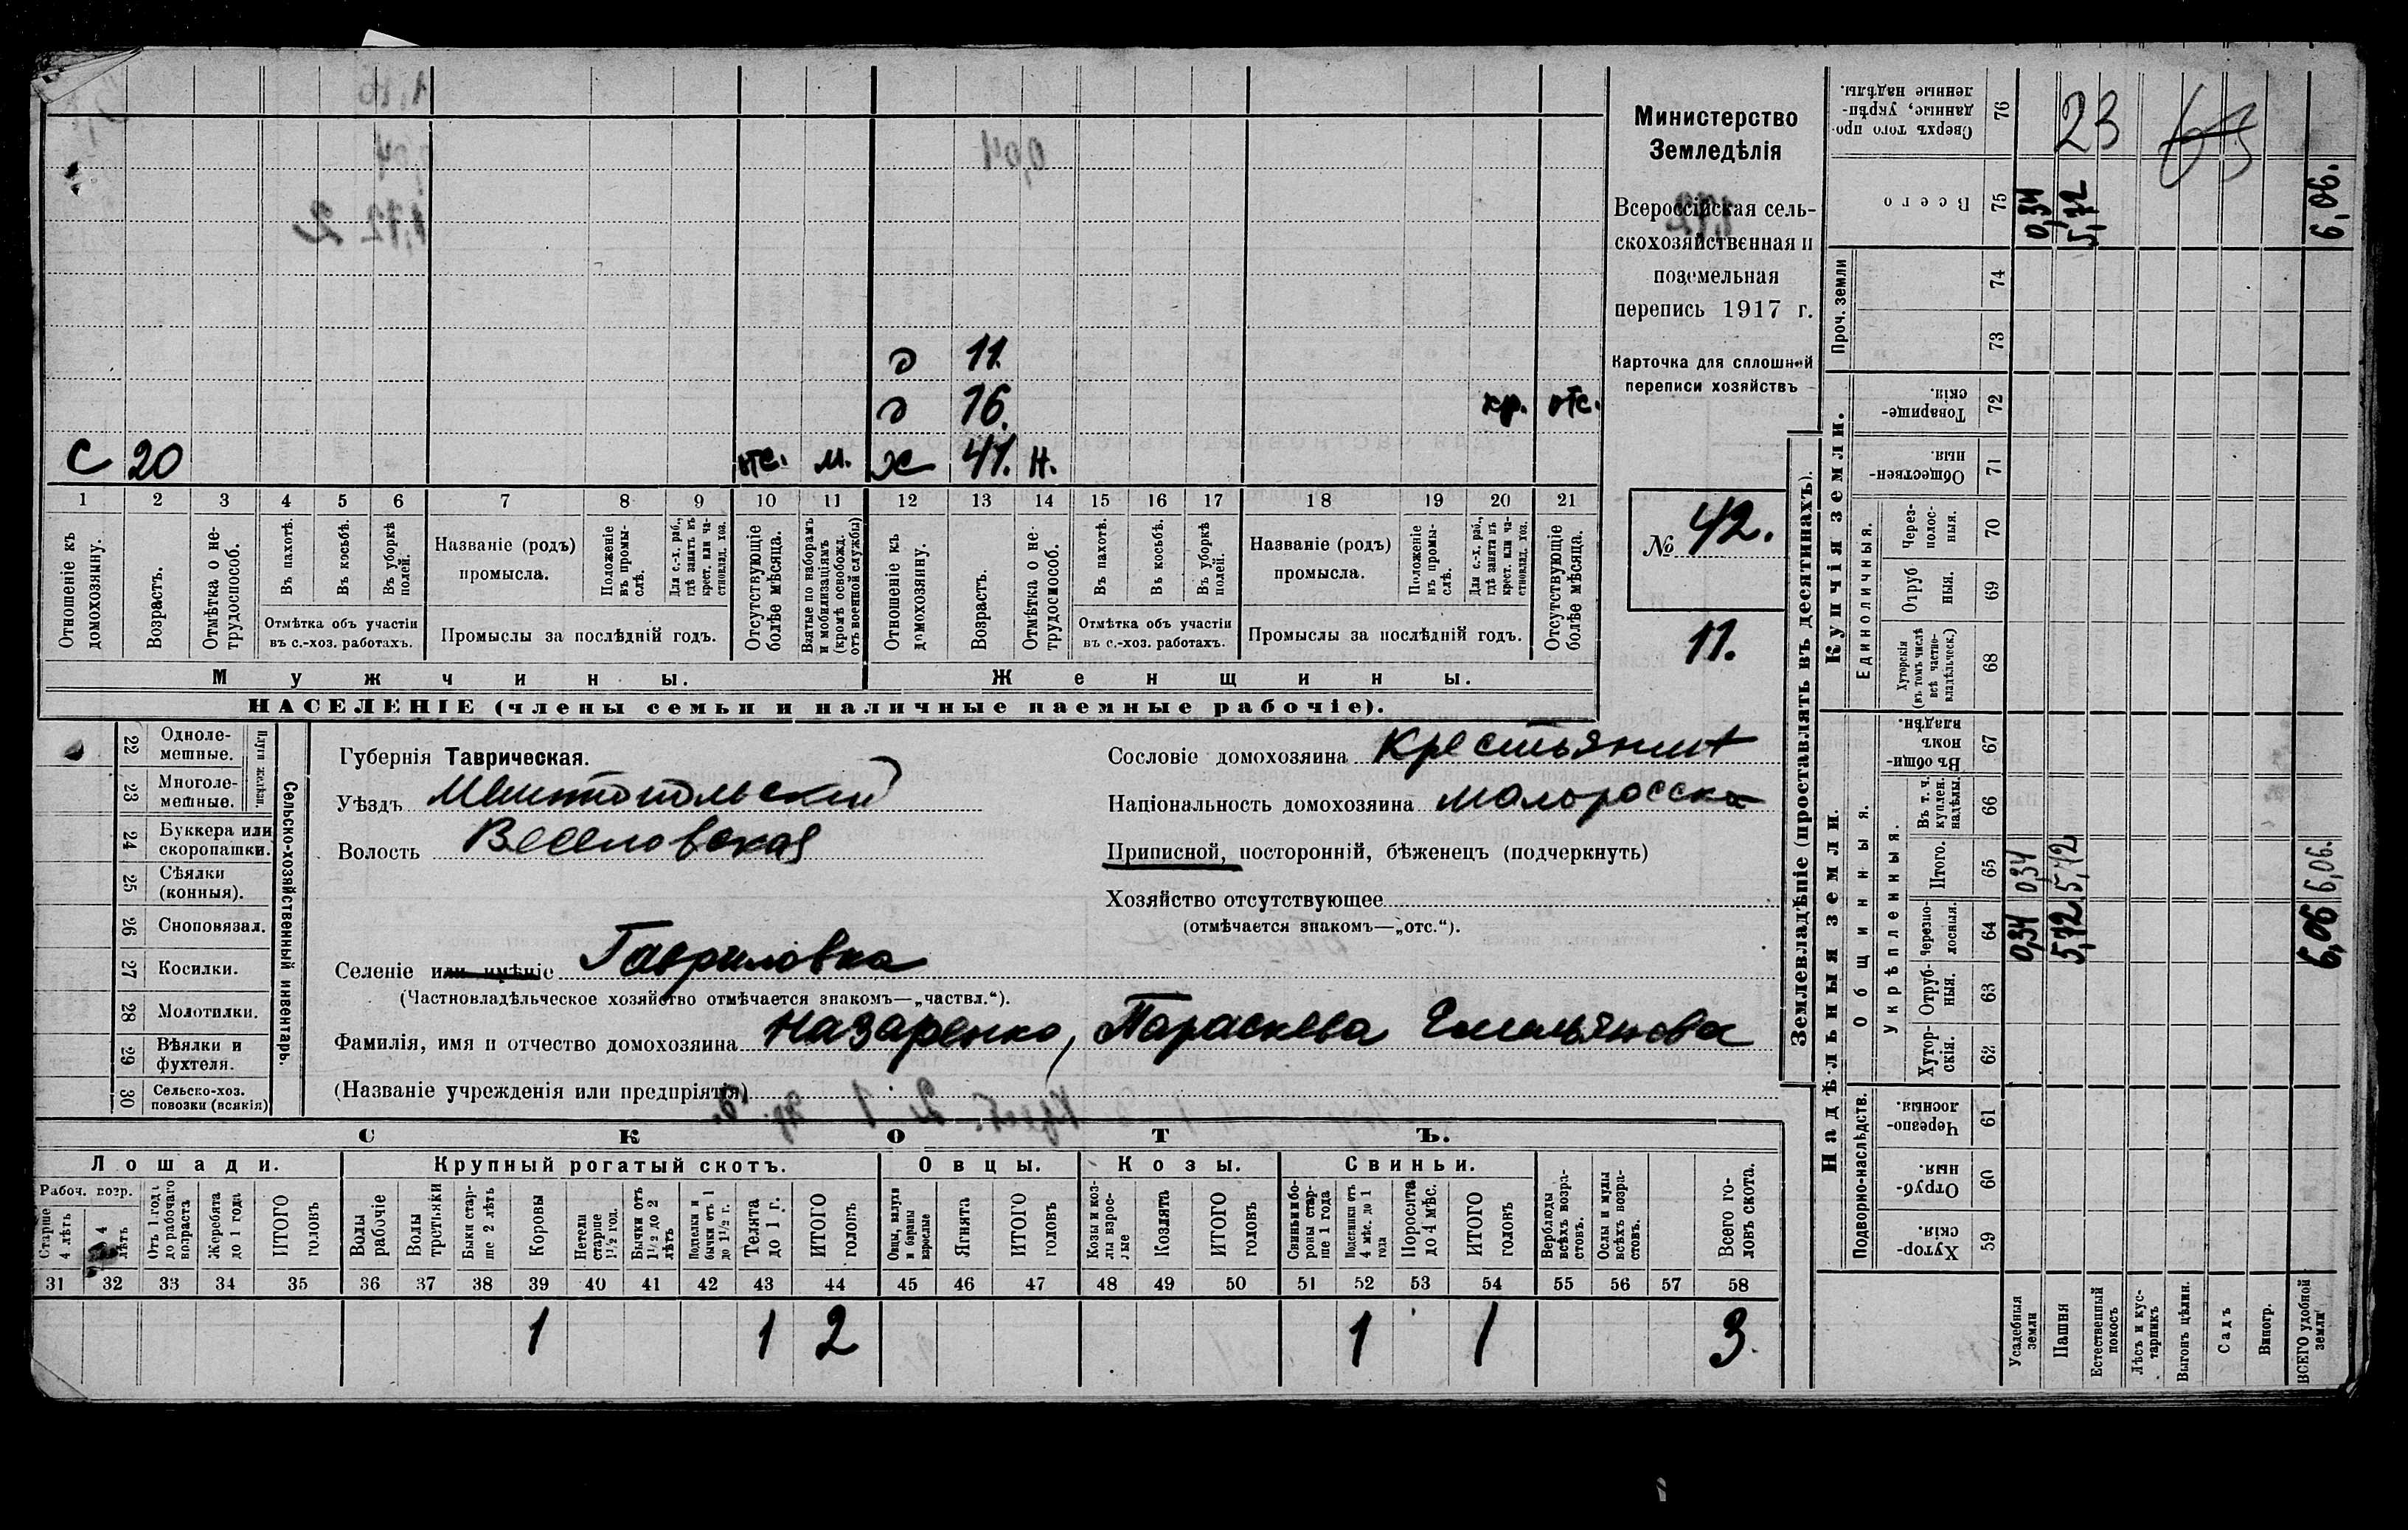 Министерство
Земледѣлія
Всероссійская сель-
скохозяйственная и
поземельная
перепись 1917 г.
Карточка для сплошной
переписи хозяйствъ
№ 42.
11.
д 11.
д 16. кр. отс.
С 20 отс. м. ж 41. н.
1 2 3 4 5 6 7 8 9 10 11 12 13 14 15 16 17 18 19 20 21
Отношеніе къ домохозяину.
Возрастъ.
Отмѣтка о не-трудоспособ.
Въ пахотѣ.
Въ косьбѣ.
Въ уборкѣ полей.
Отмѣтка объ участіи
въ с.-хоз. работахъ.
Названіе (родъ)
промысла.
Положеніе въ промы-слѣ.
Для с.-х. раб., гдѣ занятъ въ крест. или ча-стновлад. хоз.
Промыслы за послѣдній годъ.
Отсутствующіе болѣе мѣсяца.
Взятые по наборамъ и мобилизаціямъ (кромѣ освобожд. отъ военной службы)
Отношеніе къ домохозяину.
Возрастъ.
Отмѣтка о не-трудоспособ.
Въ пахотѣ.
Въ косьбѣ.
Въ уборкѣ полей.
Отмѣтка объ участіи
въ с.-хоз. работахъ.
Названіе (родъ)
промысла.
Положеніе въ промы-слѣ.
Для с.-х. раб., гдѣ занята въ крест. или ча-стновлад. хоз.
Промыслы за послѣдній годъ.
Отсутствующіе болѣе мѣсяца.
Мужчины. Женщины.
НАСЕЛЕНІЕ (члены семьи и наличные наемные рабочіе).
22 Одноле-мешные.
23 Многоле-мешные.
Плуги желѣзн.
24 Буккера или скоропашки.
25 Сѣялки (конныя).
26 Сноповязал.
27 Косилки.
28 Молотилки.
29 Вѣялки и фухтеля.
30 Сельско-хоз. повозки (всякія)
Сельско-хозяйственный инвентарь.
Губернія Таврическая.
Уѣздъ Мелитопольскій
Волость Веселовская
Селеніе или имѣніе Гавриловка
(Частновладѣльческое хозяйство отмѣчается знакомъ—„частвл.“).
Фамилія, имя и отчество домохозяина Назаренко, Параскева Емельянова
(Названіе учрежденія или предпріятія)
Сословіе домохозяина Крестьянит
Національность домохозяина малоросска
Приписной, посторонній, бѣженецъ (подчеркнуть)
Хозяйство отсутствующее
(отмѣчается знакомъ—„отс.“).
СКОТЪ.
Лошади. Крупный рогатый скотъ. Овцы. Козы. Свиньи.
Рабоч. возр.
Старше 4 лѣтъ
До 4 лѣтъ
Отъ 1 года до рабочаго возраста
Жеребята до 1 года
ИТОГО головъ
Волы рабочіе
Волы третьяки
Быки стар-ше 2 лѣтъ
Коровы
Нетели старше 1½ год.
Бычки отъ 1½ до 2 лѣтъ
Подтелки и бычки отъ 1 до 1½ г.
Телята до 1 г.
ИТОГО головъ
Овцы, валухи и бараны взрослые
Ягнята
ИТОГО головъ
Козы и коз-лы взрос-лые
Козлята
ИТОГО головъ
Свиньи и бо-роны стар-ше 1 года
Подсвинки отъ 4 мѣс. до 1 года
Поросята до 4 мѣс.
ИТОГО головъ
Верблюды всѣхъ возра-стовъ.
Ослы и мулы всѣхъ возра-стовъ.
Всего го-ловъ скота.
31 32 33 34 35 36 37 38 39 40 41 42 43 44 45 46 47 48 49 50 51 52 53 54 55 56 57 58
1 1 2 1 1 3
Землевладѣніе (проставлять въ десятинахъ).
Надѣльныя земли. Купчія земли. Проч. земли
Подворно-наслѣдств.
Общинныя.
Укрѣпленныя.
Единоличныя.
Хутор-скія. 59
Отруб-ныя. 60
Черезпо-лосныя. 61
Хутор-скія. 62
Отруб-ныя. 63
Черезпо-лосныя. 64
Итого. 65
Въ т. ч. куплен. надѣлы. 66
Въ общин-номъ владѣн. 67
Хуторскія (въ томъ числѣ всѣ частно-владѣльческ.) 68
Отруб ныя. 69
Через-полос-ныя. 70
Обществен-ныя. 71
Товарище-скія. 72
73
74
Всего 75
Сверхъ того про-данные, укрѣп-ленные надѣлы. 76
Усадебныя земли 0,34 0,34 0,34
Пашня 5,72 5,72 5,72 23
Естественный покосъ
Лѣсъ и кус-тарникъ
Выгонъ цѣлин.
Садъ
Виногр.
ВСЕГО удобной земли 6,06 6,06. 6,06.